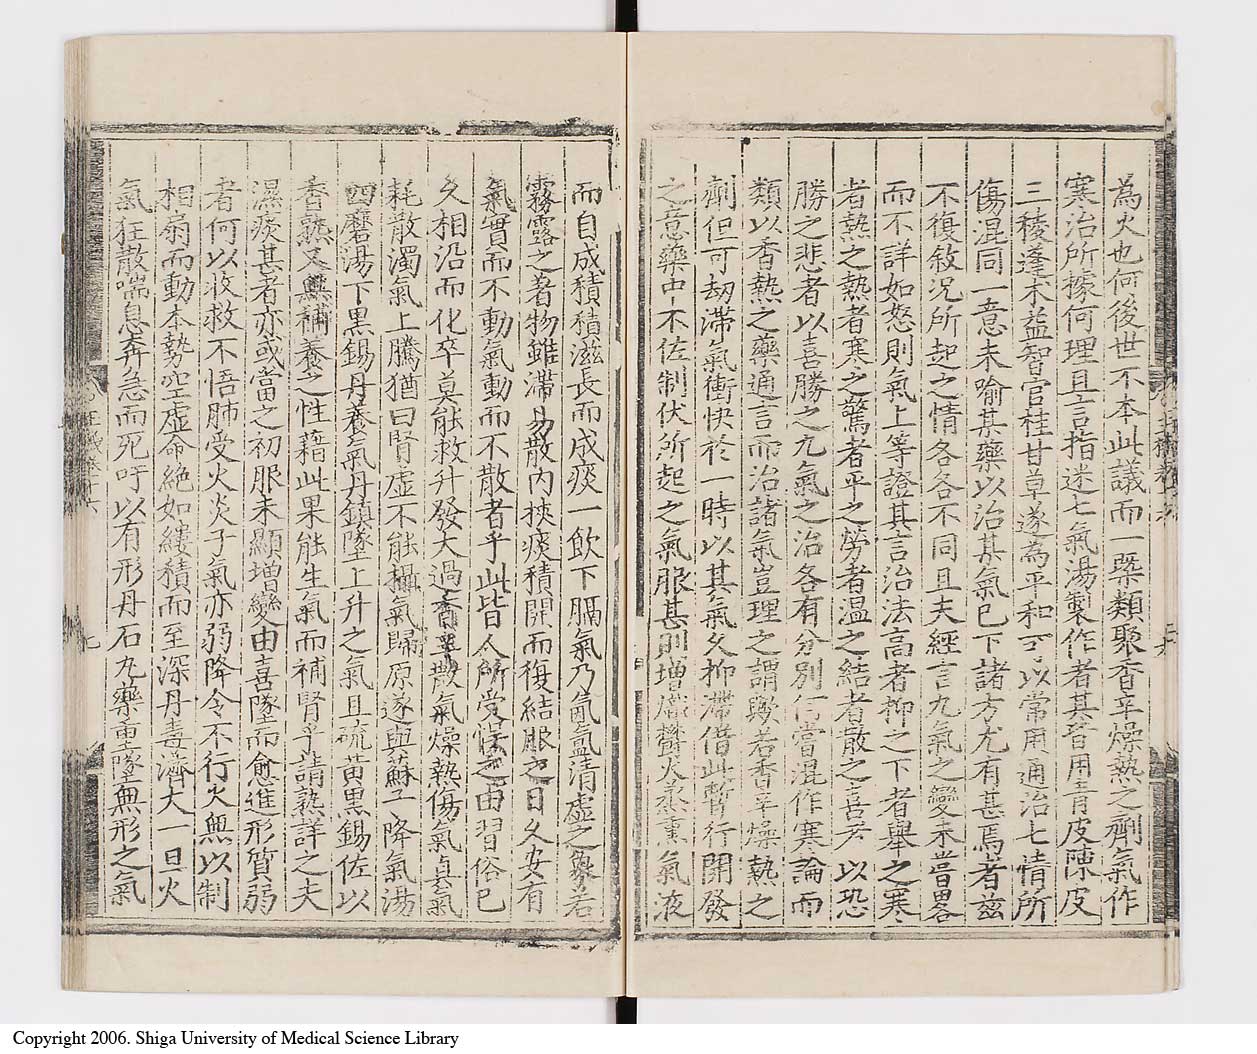 為火也何後世不本此議而一槩類聚香辛燥熱之劑氣作
寒治所據何理且言指迷七氣湯製作者其皆用青皮陳皮
三稜蓬朮益智官桂甘草遂為平和可以常用通治七情所
傷混同一意未喻某藥以治某氣已下諸方尤有甚焉者茲
不復敘況所起之情各各不同且夫經言九氣之變未嘗畧
而不詳如怒則氣上等證其言治法高者抑之下者舉之寒
者熱之熱者寒之驚者平之勞者温之結者散之喜者以恐
勝之悲者以喜勝之九氣之治各有分別何嘗混作寒論而
類以香熱之藥通言而治諸氣豈理之謂歟若香辛燥熱之
劑但可劫滯氣衝快於一時以其氣久抑滯借此暫行開發
之意藥中不佐制伏所起之氣服甚則增熾鬱火蒸熏氣液
而自成積積滋長而成痰一飲下膈氣乃氤氳清虛之象若
霧露之著物雖滯易散內挾痰積開而復結服之日久安有
氣實而不動氣動而不散者乎此皆人所受悞之由習俗已
久相沿而化卒莫能救升發太過香辛散氣燥熱傷氣真氣
耗散濁氣上騰猶曰腎虛不能攝氣歸原遂與蘇子降氣湯
四磨湯下黑錫丹養氣丹鎮墜上升之氣且硫黃黑錫佐以
香熱又無補養之性藉此果能生氣而補腎乎請熟詳之夫
濕痰甚者亦或當之初服未顯增變由喜墜而愈進形質弱
者何以收救不悟肺受火炎子氣亦弱降令不行火無以制
相扇而動本勢空虛命絕如縷積而至深丹毒濟火一旦火
氣狂散喘息奔急而死吁以有形丹石丸藥重墜無形之氣
Copyright 2006. Shiga University of Medical Science Library